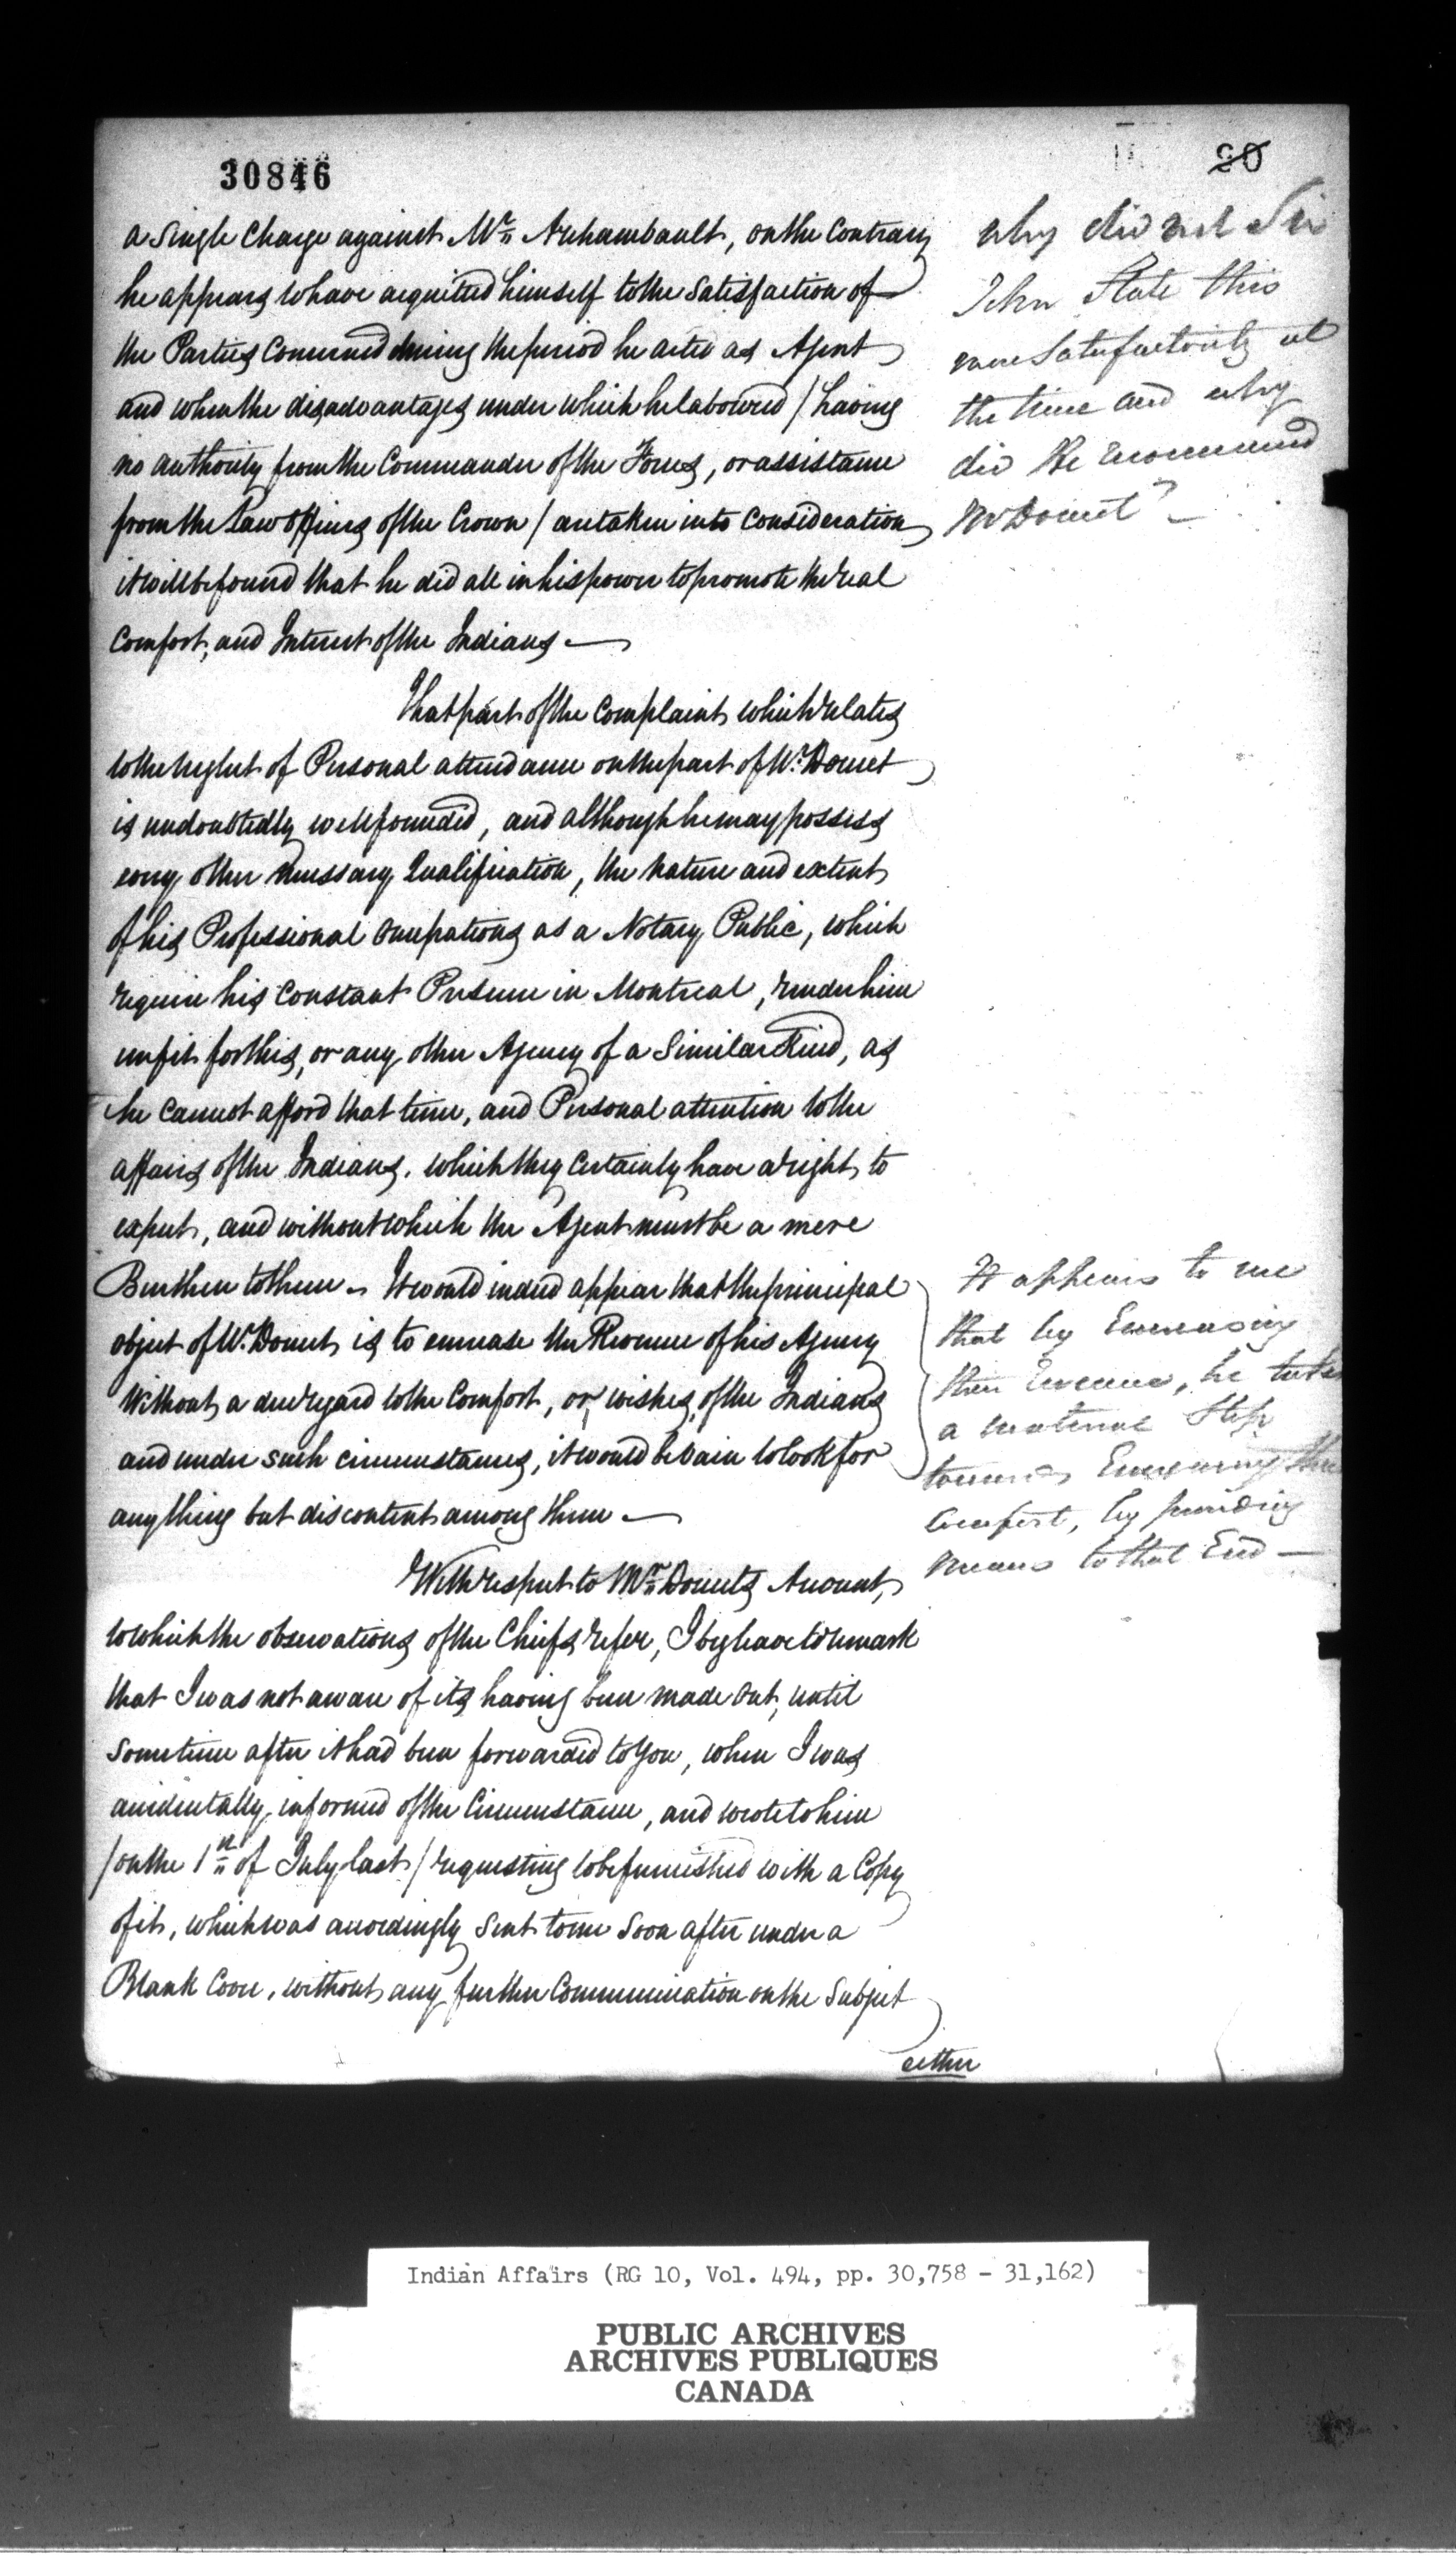 30846
20
a Single Charge against Mr. Archambault, on the Contrary
he appears to have acquitted himself to the Satisfaction of
the Parties Concerned during the period he acted as Agent
and when the disadvantages under which he laboured / having
no authority from the Commander of the Forces, or assistance
from the Law Officers of the Crown / are taken into Consideration
it will be found that he did all in his power to promote the real
Comfort, and Interest of the Indians —
That part of the Complaint which relates
to the neglect of Personal attendance on the part of Mr. Doucet
is undoubtedly well founded, and although he may possess
every other necessary Qualification, the nature and extent
of his Professional Occupations as a Notary Public, which
require his Constant Presence in Montreal, render him
unfit for this, or any other Agency of a Similar Kind, as
he Cannot afford that time, and Personal attention to the
affairs of the Indians, which they Certainly have a right to
expect, and without which the Agent must be a mere
Burthen to them. It would indeed appear that the principal
object of Mr. Doucet is to encrease the Revenue of his Agency
Without a due regard to the Comfort, or wishes of the Indians
and under such circumstances, it would be vain to look for
anything but discontent among them —
With respect to Mr. Doucets Account,
to which the observations of the Chiefs refer, I beg leave to remark
that I was not aware of its having been made out, until
Sometime after it had been forwarded to You, when I was
accidentally informed of the Circumstance, and wrote to him
/ on the 1st of July last / requesting to be furnished with a Copy
of it, which was accordingly Sent to me Soon after under a
Blank Cover, without any further Communication on the Subject
either
why did not Sir
John State this
more Satisfactorily at
the time and why
did He recommend
Mr Doucet? —
It appears to me
that by Encreasing
their Revenue, he takes
a material Step
towards Encreasing their
Comfort, by providing
means to that End —
Indian Affairs (RG 10, Vol. 494, pp. 30,758 - 31,162)
PUBLIC ARCHIVES
ARCHIVES PUBLIQUES
CANADA